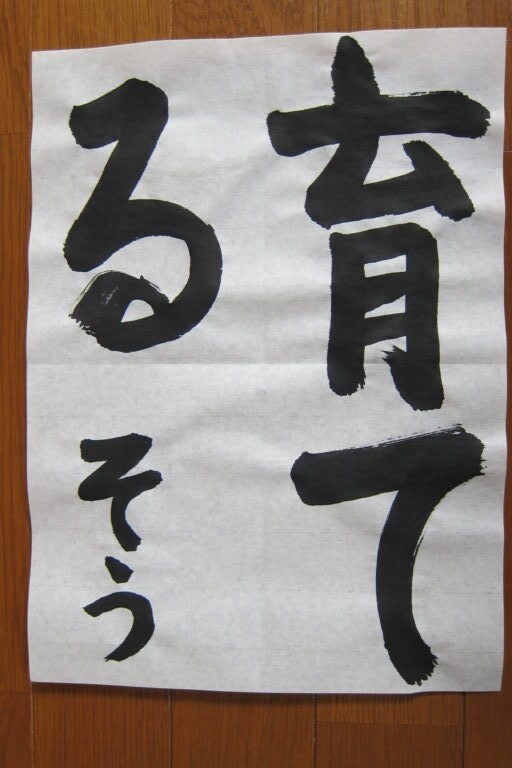 育て
る
そう